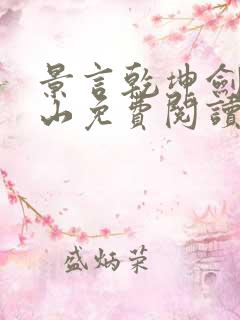 景言乾坤劍
山免費閱讀
盛炳荣